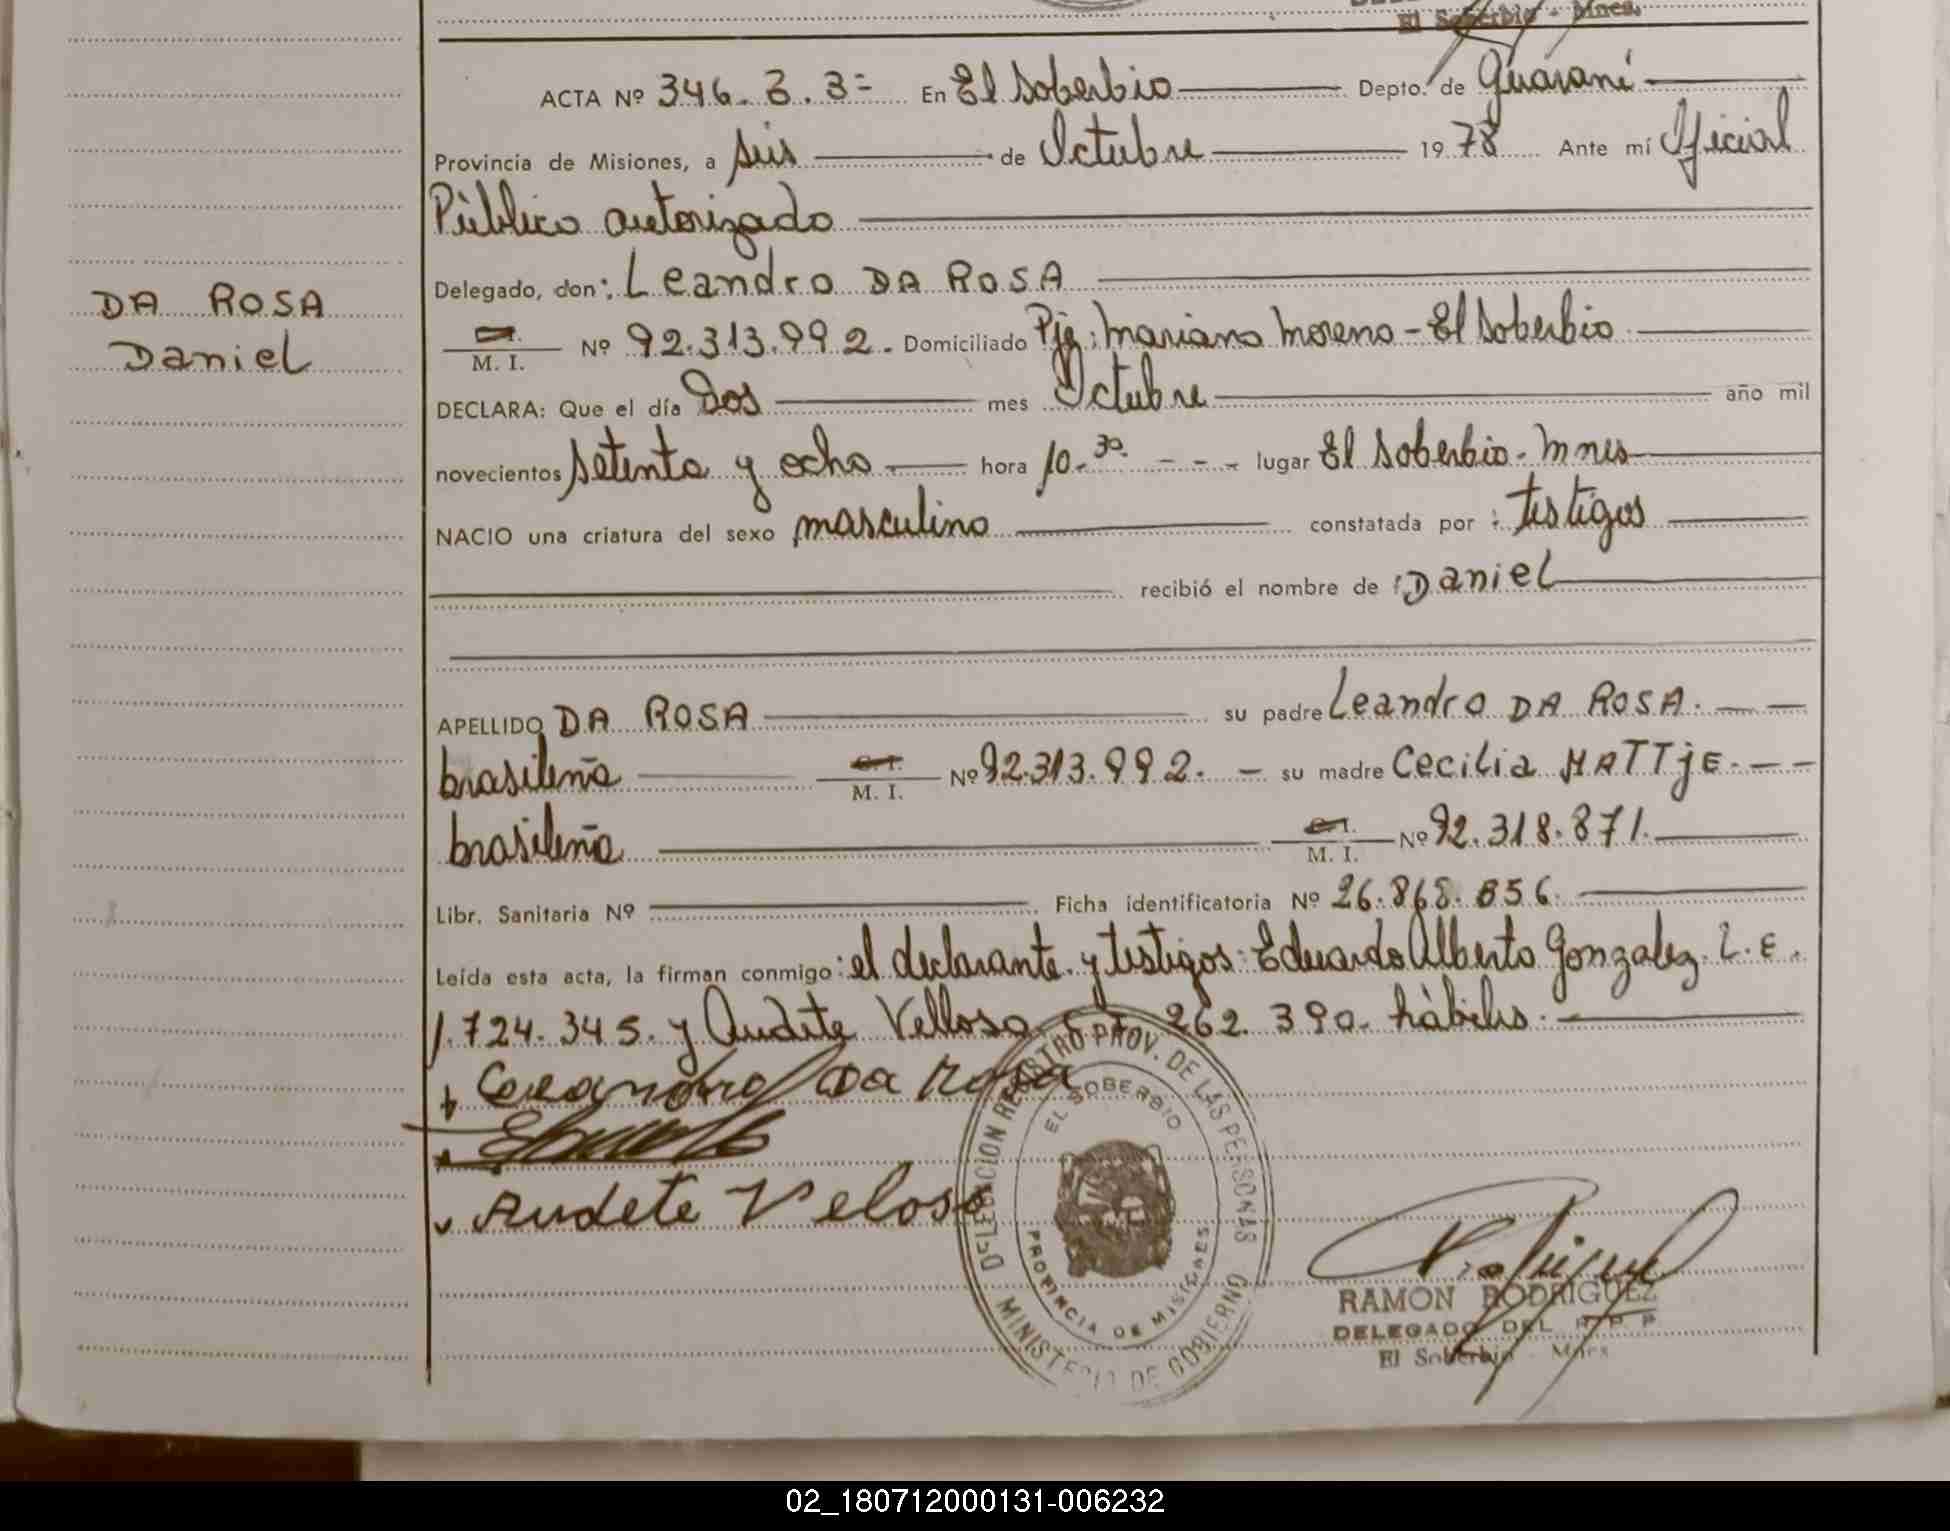 El Soberbio - Mnes.
ACTA Nº 346. 3. 3= En El Soberbio Depto. de Guaraní
Provincia de Misiones, a seis de Octubre 1978 Ante mí Oficial
Público autorizado
Delegado, don: Leandro DA ROSA
DA ROSA
Daniel
C.I.
M. I. Nº 92.313.992. Domiciliado Pje: Mariano Moreno - El Soberbio
DECLARA: Que el día Dos mes Octubre año mil
novecientos setenta y ocho hora 10.30. - - - lugar El Soberbio. Mnes
NACIO una criatura del sexo masculino constatada por : testigos
recibió el nombre de : Daniel
APELLIDO DA ROSA su padre Leandro DA ROSA. — —
brasileña C.I. M. I. Nº 92.313.992. — su madre Cecilia MATTjE. — —
brasileña C.I. M. I. Nº 92.318.871.
Libr. Sanitaria Nº Ficha identificatoria Nº 26.868.856.
Leída esta acta, la firman conmigo: el declarante y testigos: Eduardo Alberto Gonzalez. L.E.
1.724.345. y Audete Velloso 262.390. hàbiles.
Leandro Da Rosa
Audete Veloso
DELEGACION REGISTRO PROV. DE LAS PERSONAS
EL SOBERBIO
PROVINCIA DE MISIONES
MINISTERIO DE GOBIERNO
RAMON RODRIGUEZ
DELEGADO DEL R P P
El Soberbio - Mnes
02_180712000131-006232